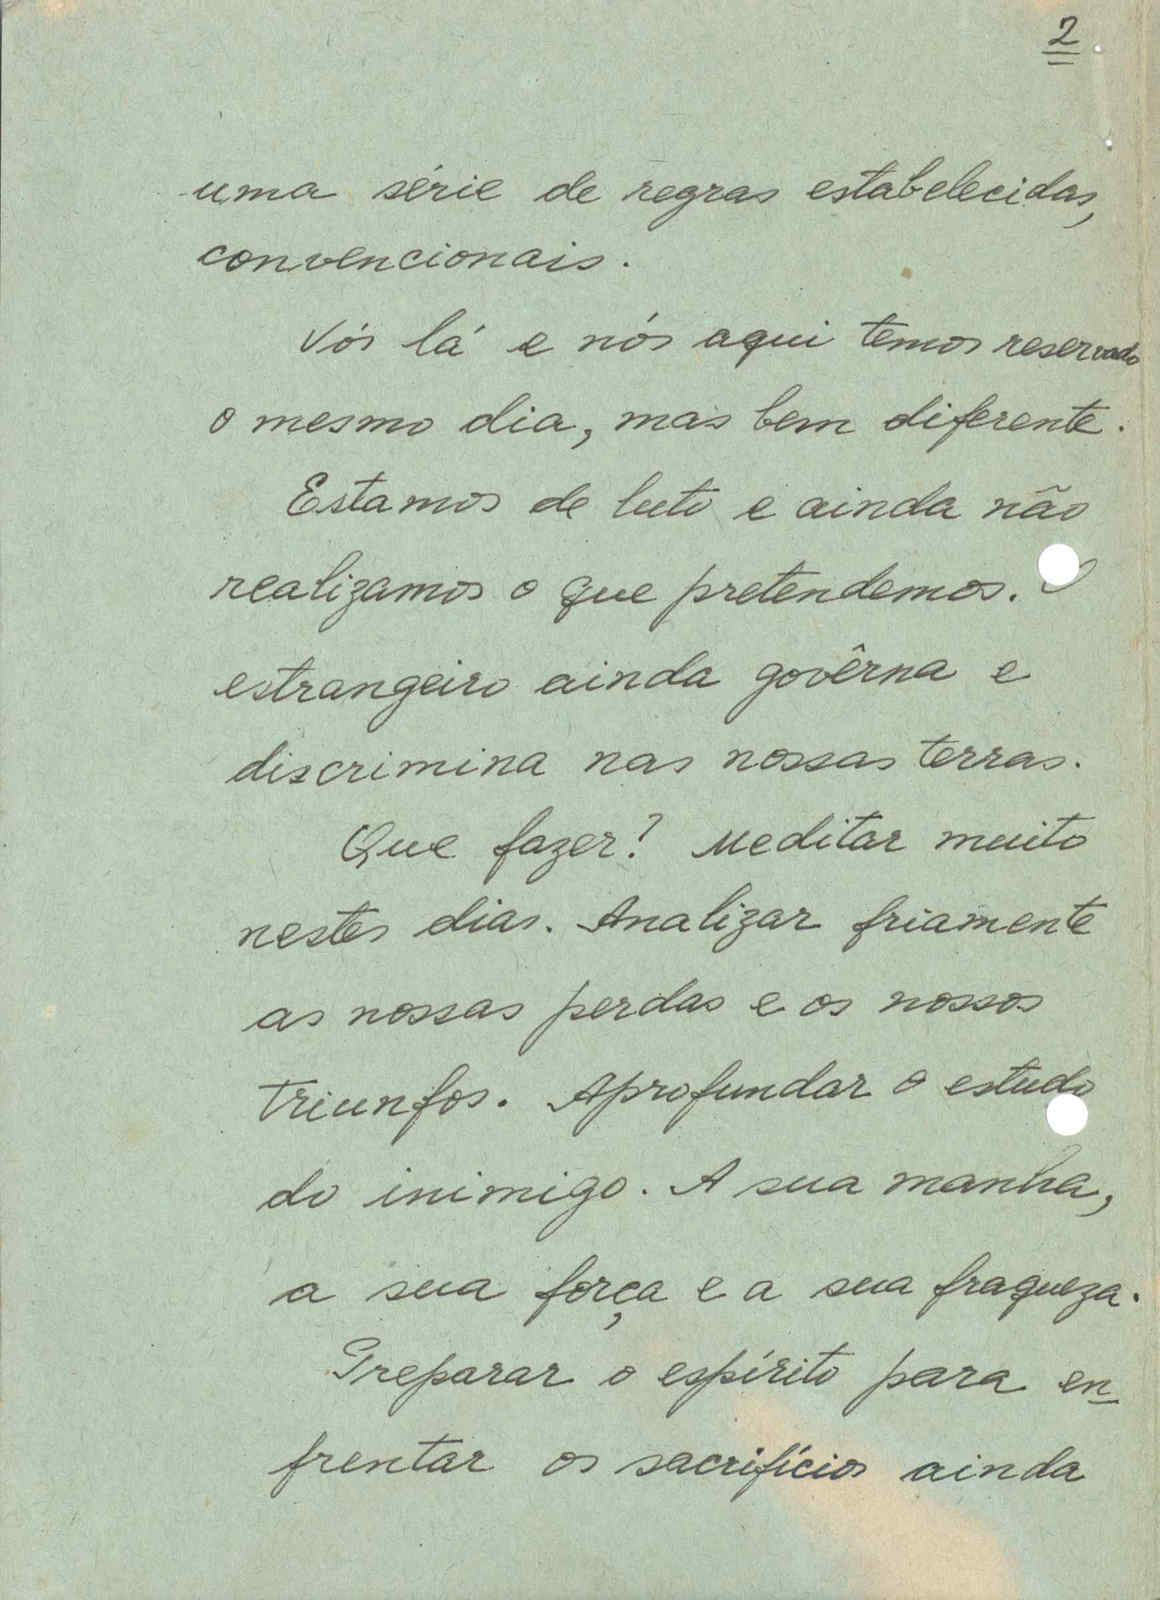 2
uma série de regras estabelecidas,
convencionais.
Vós lá e nós aqui temos reservado
o mesmo dia, mas bem diferente.
Estamos de luto e ainda não
realizamos o que pretendemos. O
estrangeiro ainda govêrna e
discrimina nas nossas terras.
Que fazer? Meditar muito
nestes dias. Analizar friamente
as nossas perdas e os nossos
triunfos. Aprofundar o estudo
do inimigo. A sua manha,
a sua força e a sua fraqueza.
Preparar o espírito para en_
frentar os sacrifícios ainda